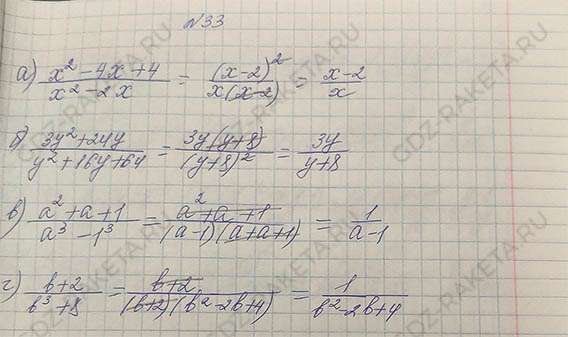 №33
а) (x² - 4x + 4)/(x² - 2x) = (x-2)²/(x(x-2)) = (x-2)/x
б) (3y² + 24y)/(y² + 16y + 64) = (3y(y+8))/((y+8)²) = 3y/(y+8)
в) (a² + a + 1)/(a³ - 1³) = (a² + a + 1)/((a-1)(a+a+1)) = 1/(a-1)
г) (b+2)/(b³ + 8) = (b+2)/((b+2)(b² - 2b + 4)) = 1/(b² - 2b + 4)
GDZ-RAKETA.RU
GDZ-RAKETA.RU
GDZ-RAKETA.RU
GDZ-RAKETA.RU